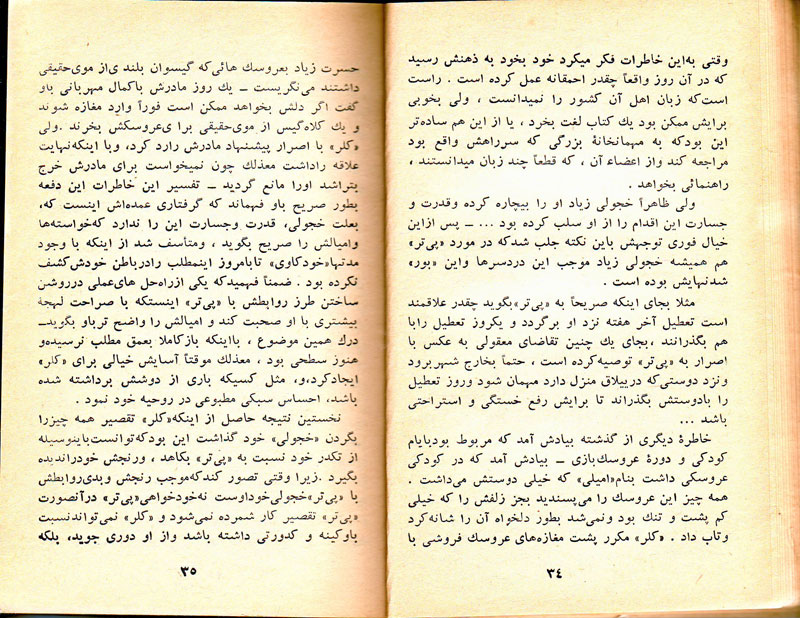 وقتی به‌این خاطرات فکر میکرد خود بخود به ذهنش رسید
که در آن روز واقعاً چقدر احمقانه عمل کرده است . راست
است‌که زبان اهل آن کشور را نمیدانست ، ولی بخوبی
برایش ممکن بود یك کتاب لغت بخرد ، یا از این هم ساده‌تر
این بودکه به مهمانخانهٔ بزرگی که سرراهش واقع بود
مراجعه کند واز اعضاء آن ، که قطعاً چند زبان میدانستند ،
راهنمائی بخواهد .
ولی ظاهراً خجولی زیاد او را بیچاره کرده وقدرت و
جسارت این اقدام را از او سلب کرده بود ... ـ پس ازاین
خیال فوری توجهش باین نکته جلب شدکه در مورد «پی‌تر»
هم همیشه خجولی زیاد موجب این دردسرها واین «بور»
شدنهایش بوده است .
مثلا بجای اینکه صریحاً به «پی‌تر»بگوید چقدر علاقمند
است تعطیل آخر هفته نزد او برگردد و یکروز تعطیل رابا
هم بگذرانند ،بجای یك چنین تقاضای معقولی به عکس با
اصرار به «پی‌تر» توصیه‌کرده است ، حتماً بخارج شهربرود
ونزد دوستی‌که درییلاق منزل دارد مهمان شود وروز تعطیل
را بادوستش بگذراند تا برایش رفع خستگی و استراحتی
باشد ...
خاطرهٔ دیگری از گذشته بیادش آمد که مربوط بودبایام
کودکی و دورهٔ عروسك‌بازی ـ بیادش آمد که در کودکی
عروسکی داشت بنام«امیلی» که خیلی دوستش می‌داشت .
همه چیز این عروسك را می‌پسندید بجز زلفش را که خیلی
کم پشت و تنك بود ونمی‌شد بطور دلخواه آن را شانه‌کرد
وتاب داد . «کلر» مکرر پشت مغازه‌های عروسك فروشی با
۳٤
حسرت زیاد بعروسك هائی‌که گیسوان بلند ی‌از موی‌حقیقی
داشتند می‌نگریست ـ یك روز مادرش باکمال مهربانی باو
گفت اگر دلش بخواهد ممکن است فوراً وارد مغازه شوند
و یك کلاه‌گیس از موی‌حقیقی برا ی‌عروسکش بخرند .ولی
«کلر» با اصرار پیشنهاد مادرش رارد کرد، وبا اینکه‌نهایت
علاقه راداشت معذلك چون نمیخواست برای مادرش خرج
بتراشد اورا مانع گردید ـ تفسیر این خاطرات این دفعه
بطور صریح باو فهماند که گرفتاری عمده‌اش اینست که،
بعلت خجولی، قدرت وجسارت این را ندارد که‌خواسته‌ها
وامیالش را صریح بگوید ، ومتاسف شد از اینکه با وجود
مدتها«خودکاوی» تابامروز اینمطلب رادرباطن خودش‌کشف
نکرده بود . ضمناً فهمیدکه یکی ازراه‌حل های‌عملی درروشن
ساختن طرز روابطش با «پی‌تر» اینستکه با صراحت لهجهٔ
بیشتری با او صحبت کند و امیالش را واضح ترباو بگویدـ
درك همین موضوع ، بااینکه بازکاملا بعمق مطلب نرسیده‌و
هنوز سطحی بود ، معذلك موقتاً آسایش خیالی برای «کلر»
ایجادکرد،و، مثل کسیکه باری از دوشش برداشته شده
باشد، احساس سبکی مطبوعی در روحیه خود نمود .
نخستین نتیجه حاصل از اینکه«کلر» تقصیر همه چیزرا
بگردن «خجولی» خود گذاشت این بودکه توانست‌باینوسیله
از تکدر خود نسبت به «پی‌تر» بکاهد ، ورنجش خودرانديده
بگیرد .زیرا وقتی تصور کندکه‌موجب رنجش وبدی‌روابطش
با «پی‌تر»خجولی‌خوداوست نه‌خودخواهی«پی‌تر» درآنصورت
«پی‌تر» تقصیر کار شمرده نمی‌شود و «کلر» نمی‌تواندنسبت
باوکینه و کدورتی داشته باشد واز او دوری جوید، بلکه
۳٥